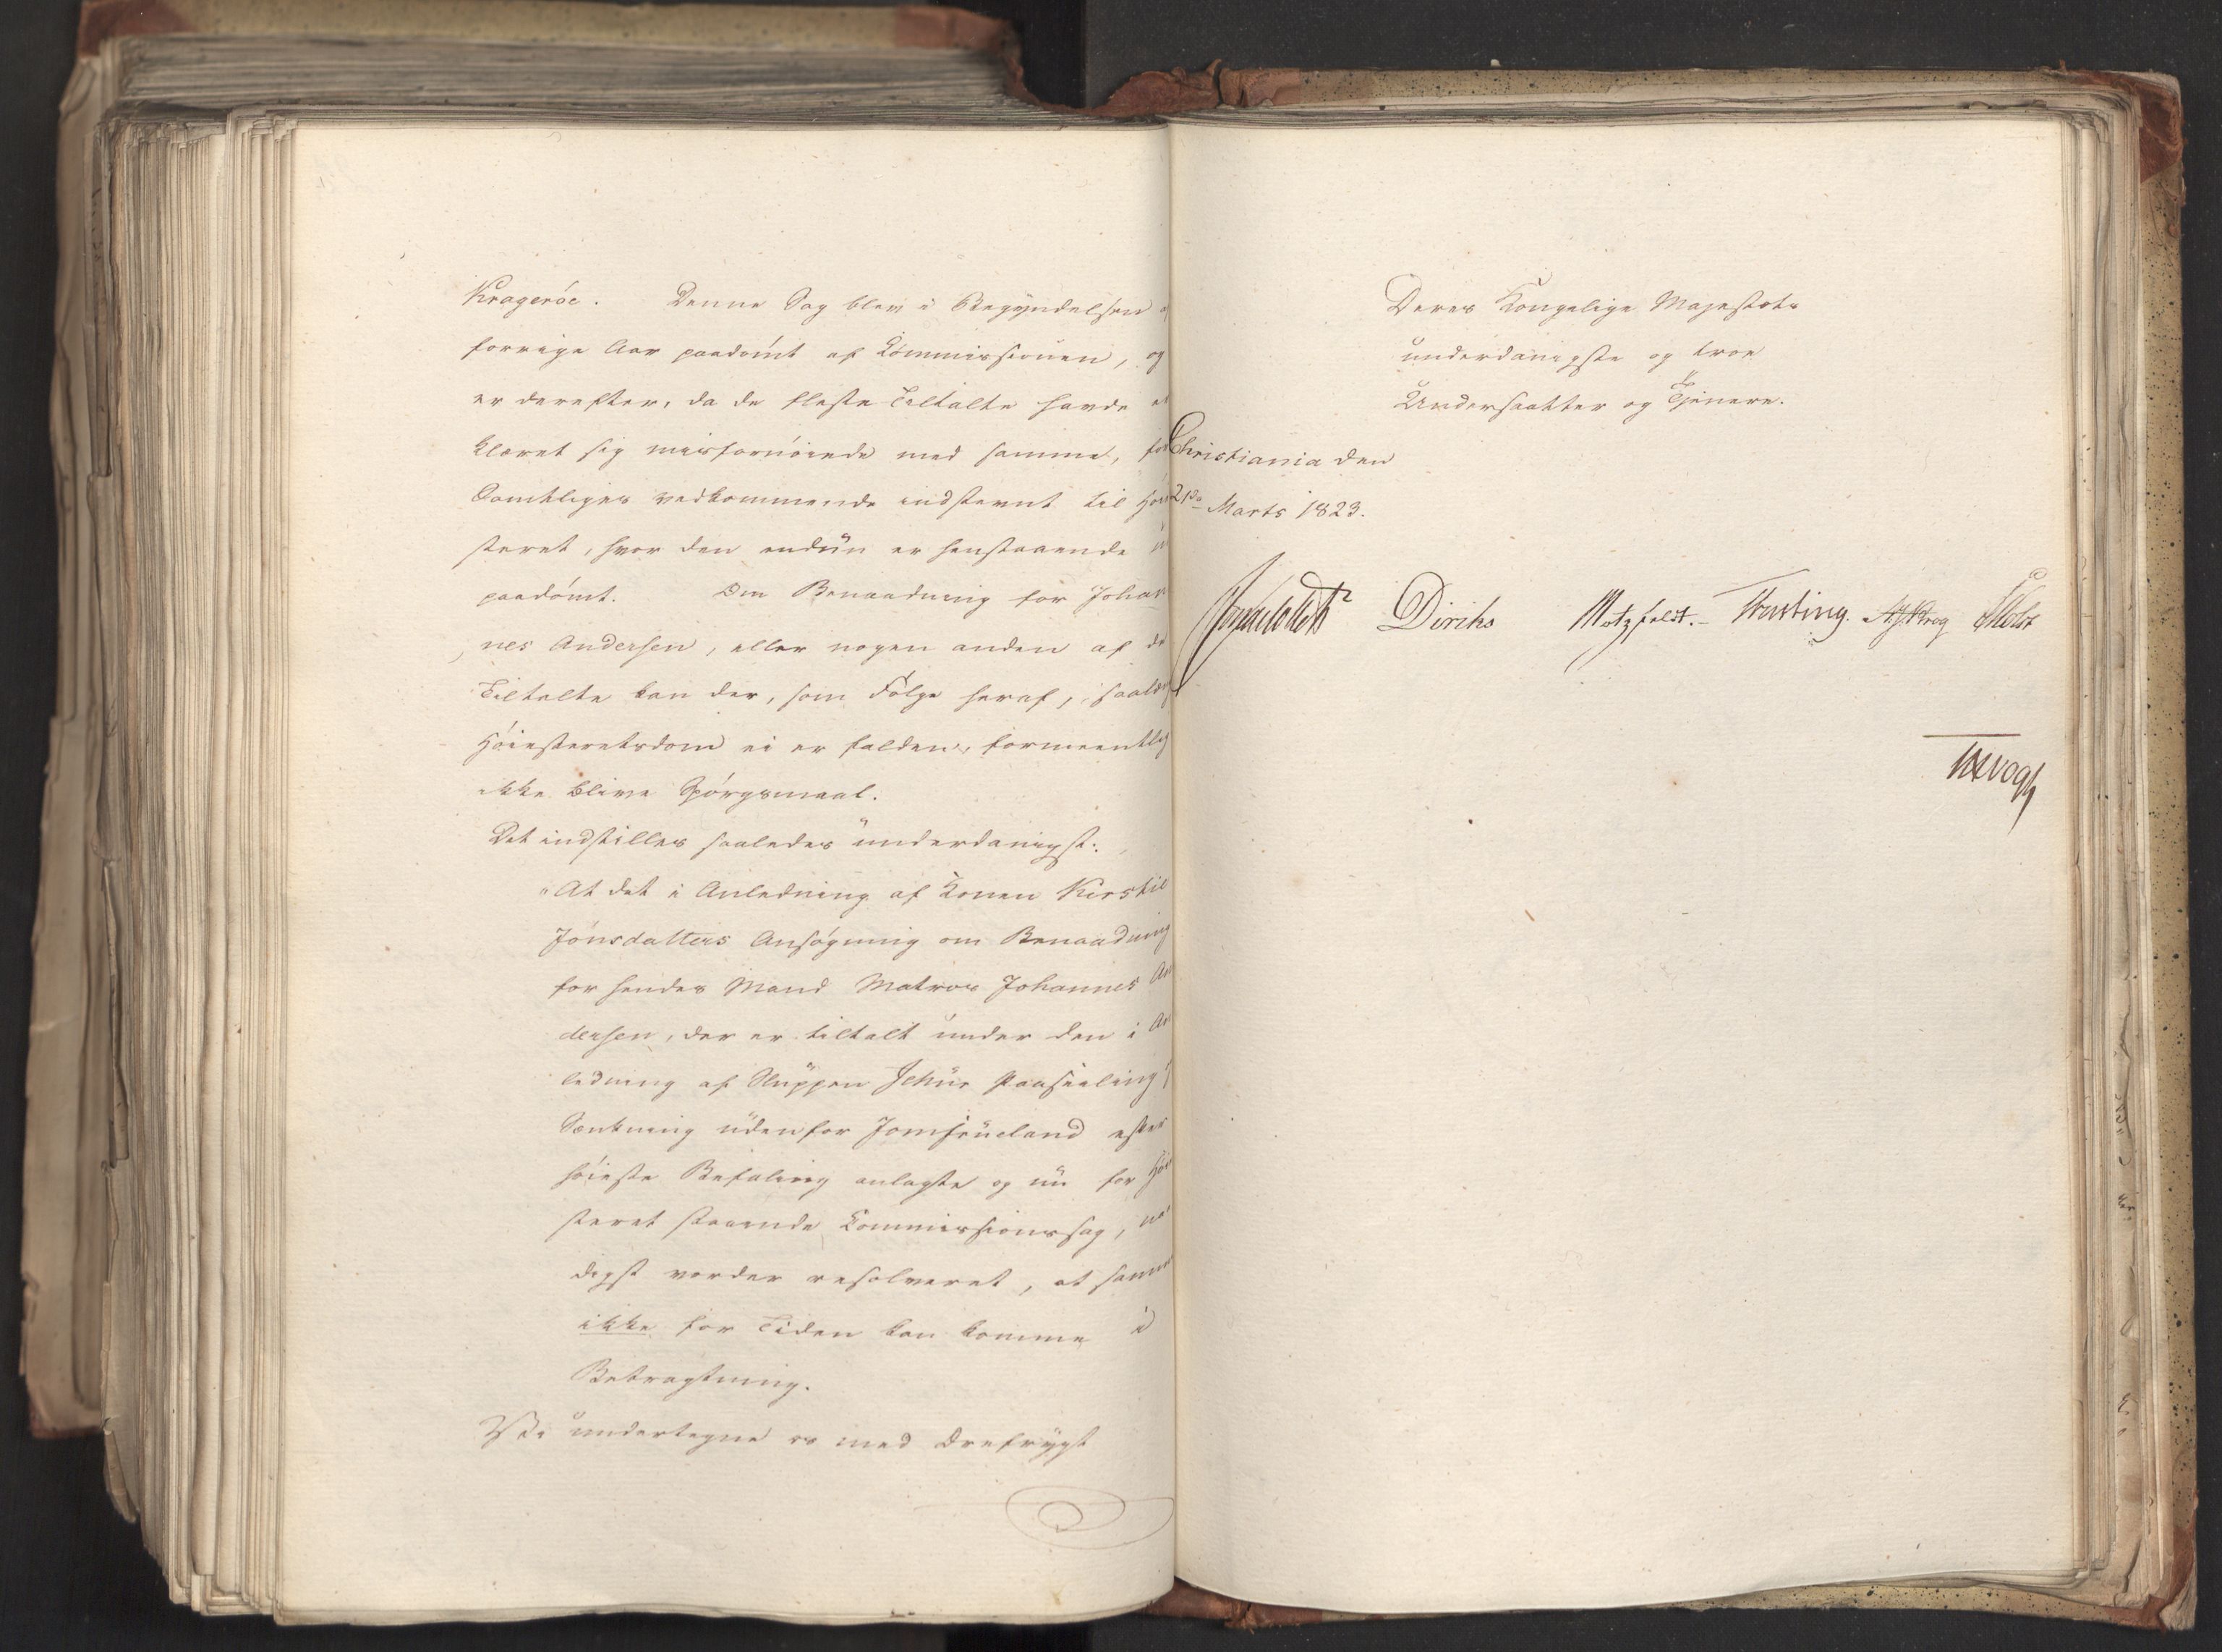 Kragerøe. Denne Sag blev i Begyndelsen
forrige Aar paadømt af Commissionen, og
er derefter, da de fleste Tiltalte havde er
klæret sig misfornøiede med samme, for
Samtliges vedkommende indstevnt til Høie
steret, hvor den endnu er henstaaende
paadømt. Om Benaadning for Johan
nes Andersen, eller nogen anden af de
Tiltalte kan der, som Følge heraf, saalænge
Høiesteretsdom ei er falden, formeentlig
ikke blive Spørgsmaal.
Det indstilles saaledes underdanigst:
"At det i Anledning af Konen Kirstie
Jonsdatters Ansøgning om Benaadning
for hendes Mand Matros Johannes An
dersen, der er tiltalt under den i An
ledning af Skuppen Jehus
Sænkning udenfor Jomfrueland efter
høieste Befaling anlagte og nu for Høie
steret staaende Commissionssag, naa
digst vorder resolveret, at samme
ikke for Tiden kan komme i
Betragtning.
Vi undertegne os med Ærefrygt
Deres Kongelige Majestæts
underdanigste og troe
Undersaatter og Tjenere.
Christiania den
21de Marts 1823.
Diriks Motzfeldt. Treschow Krog Holst
Vogt